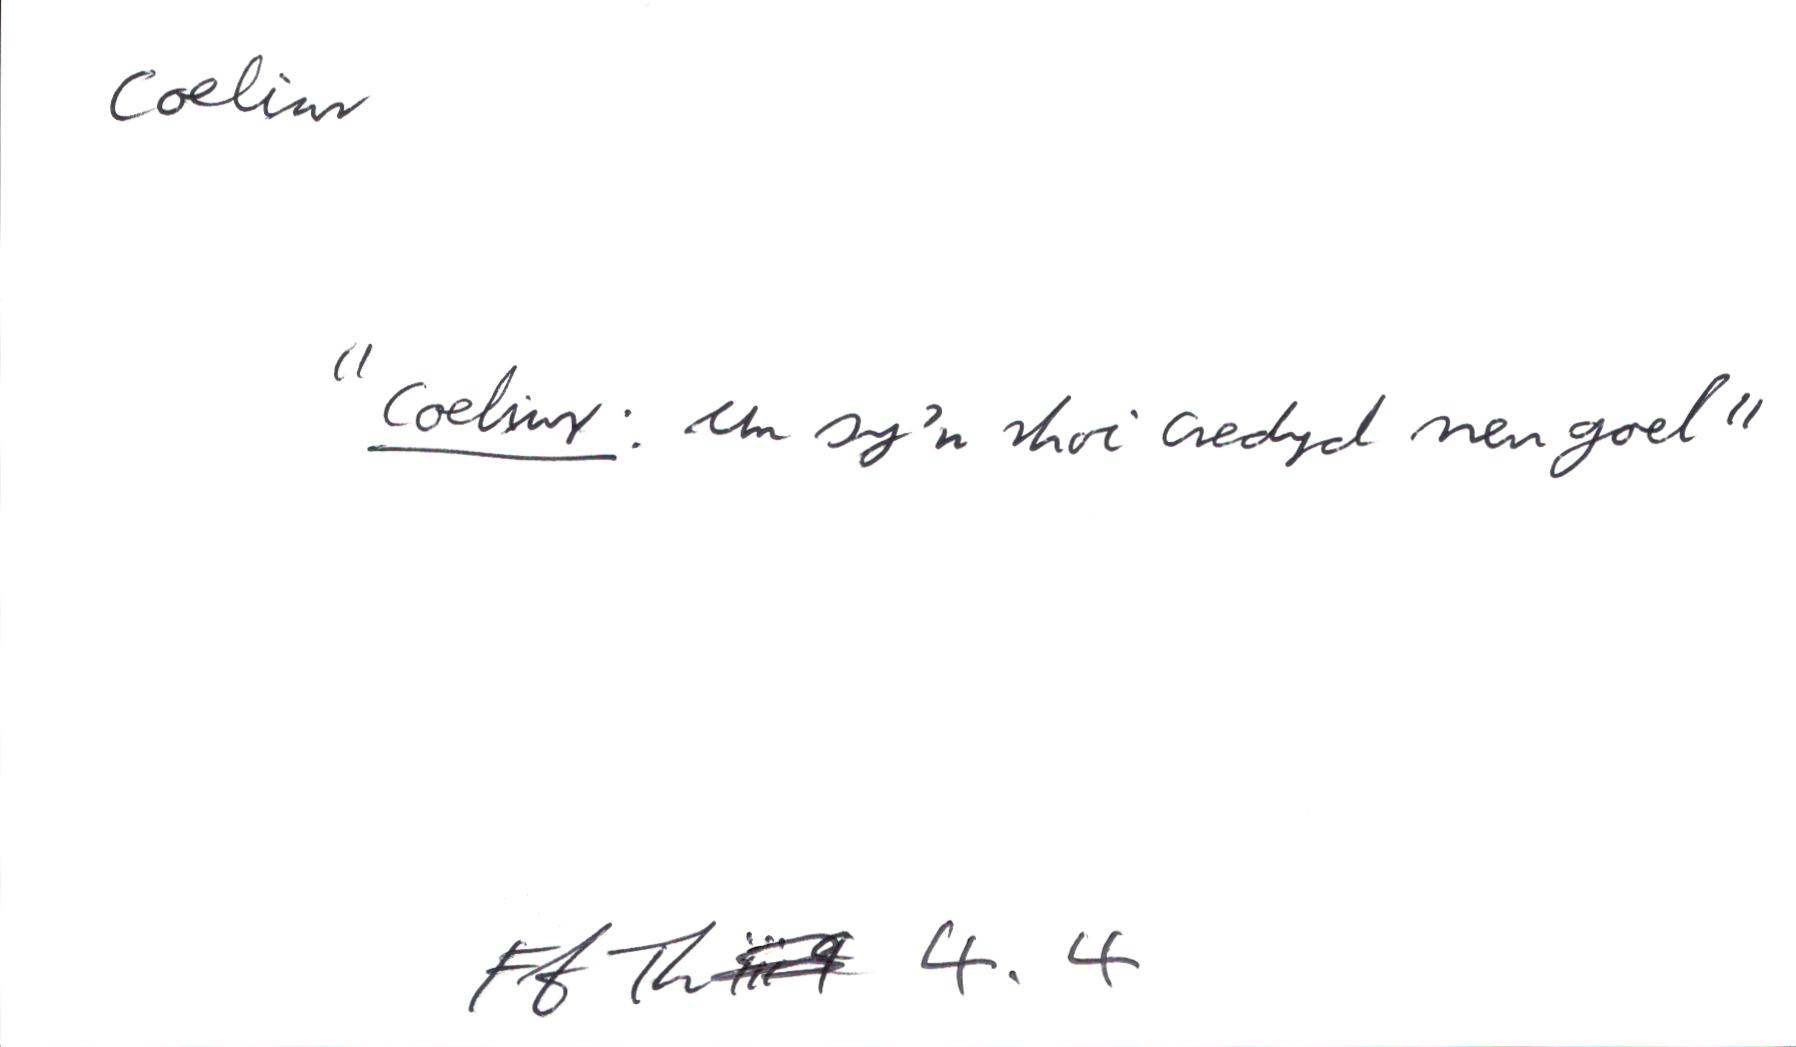 Coeliwr
"Coeliwr: Un sy'n rhoi credyd neu goel"
Ff Th 4.4